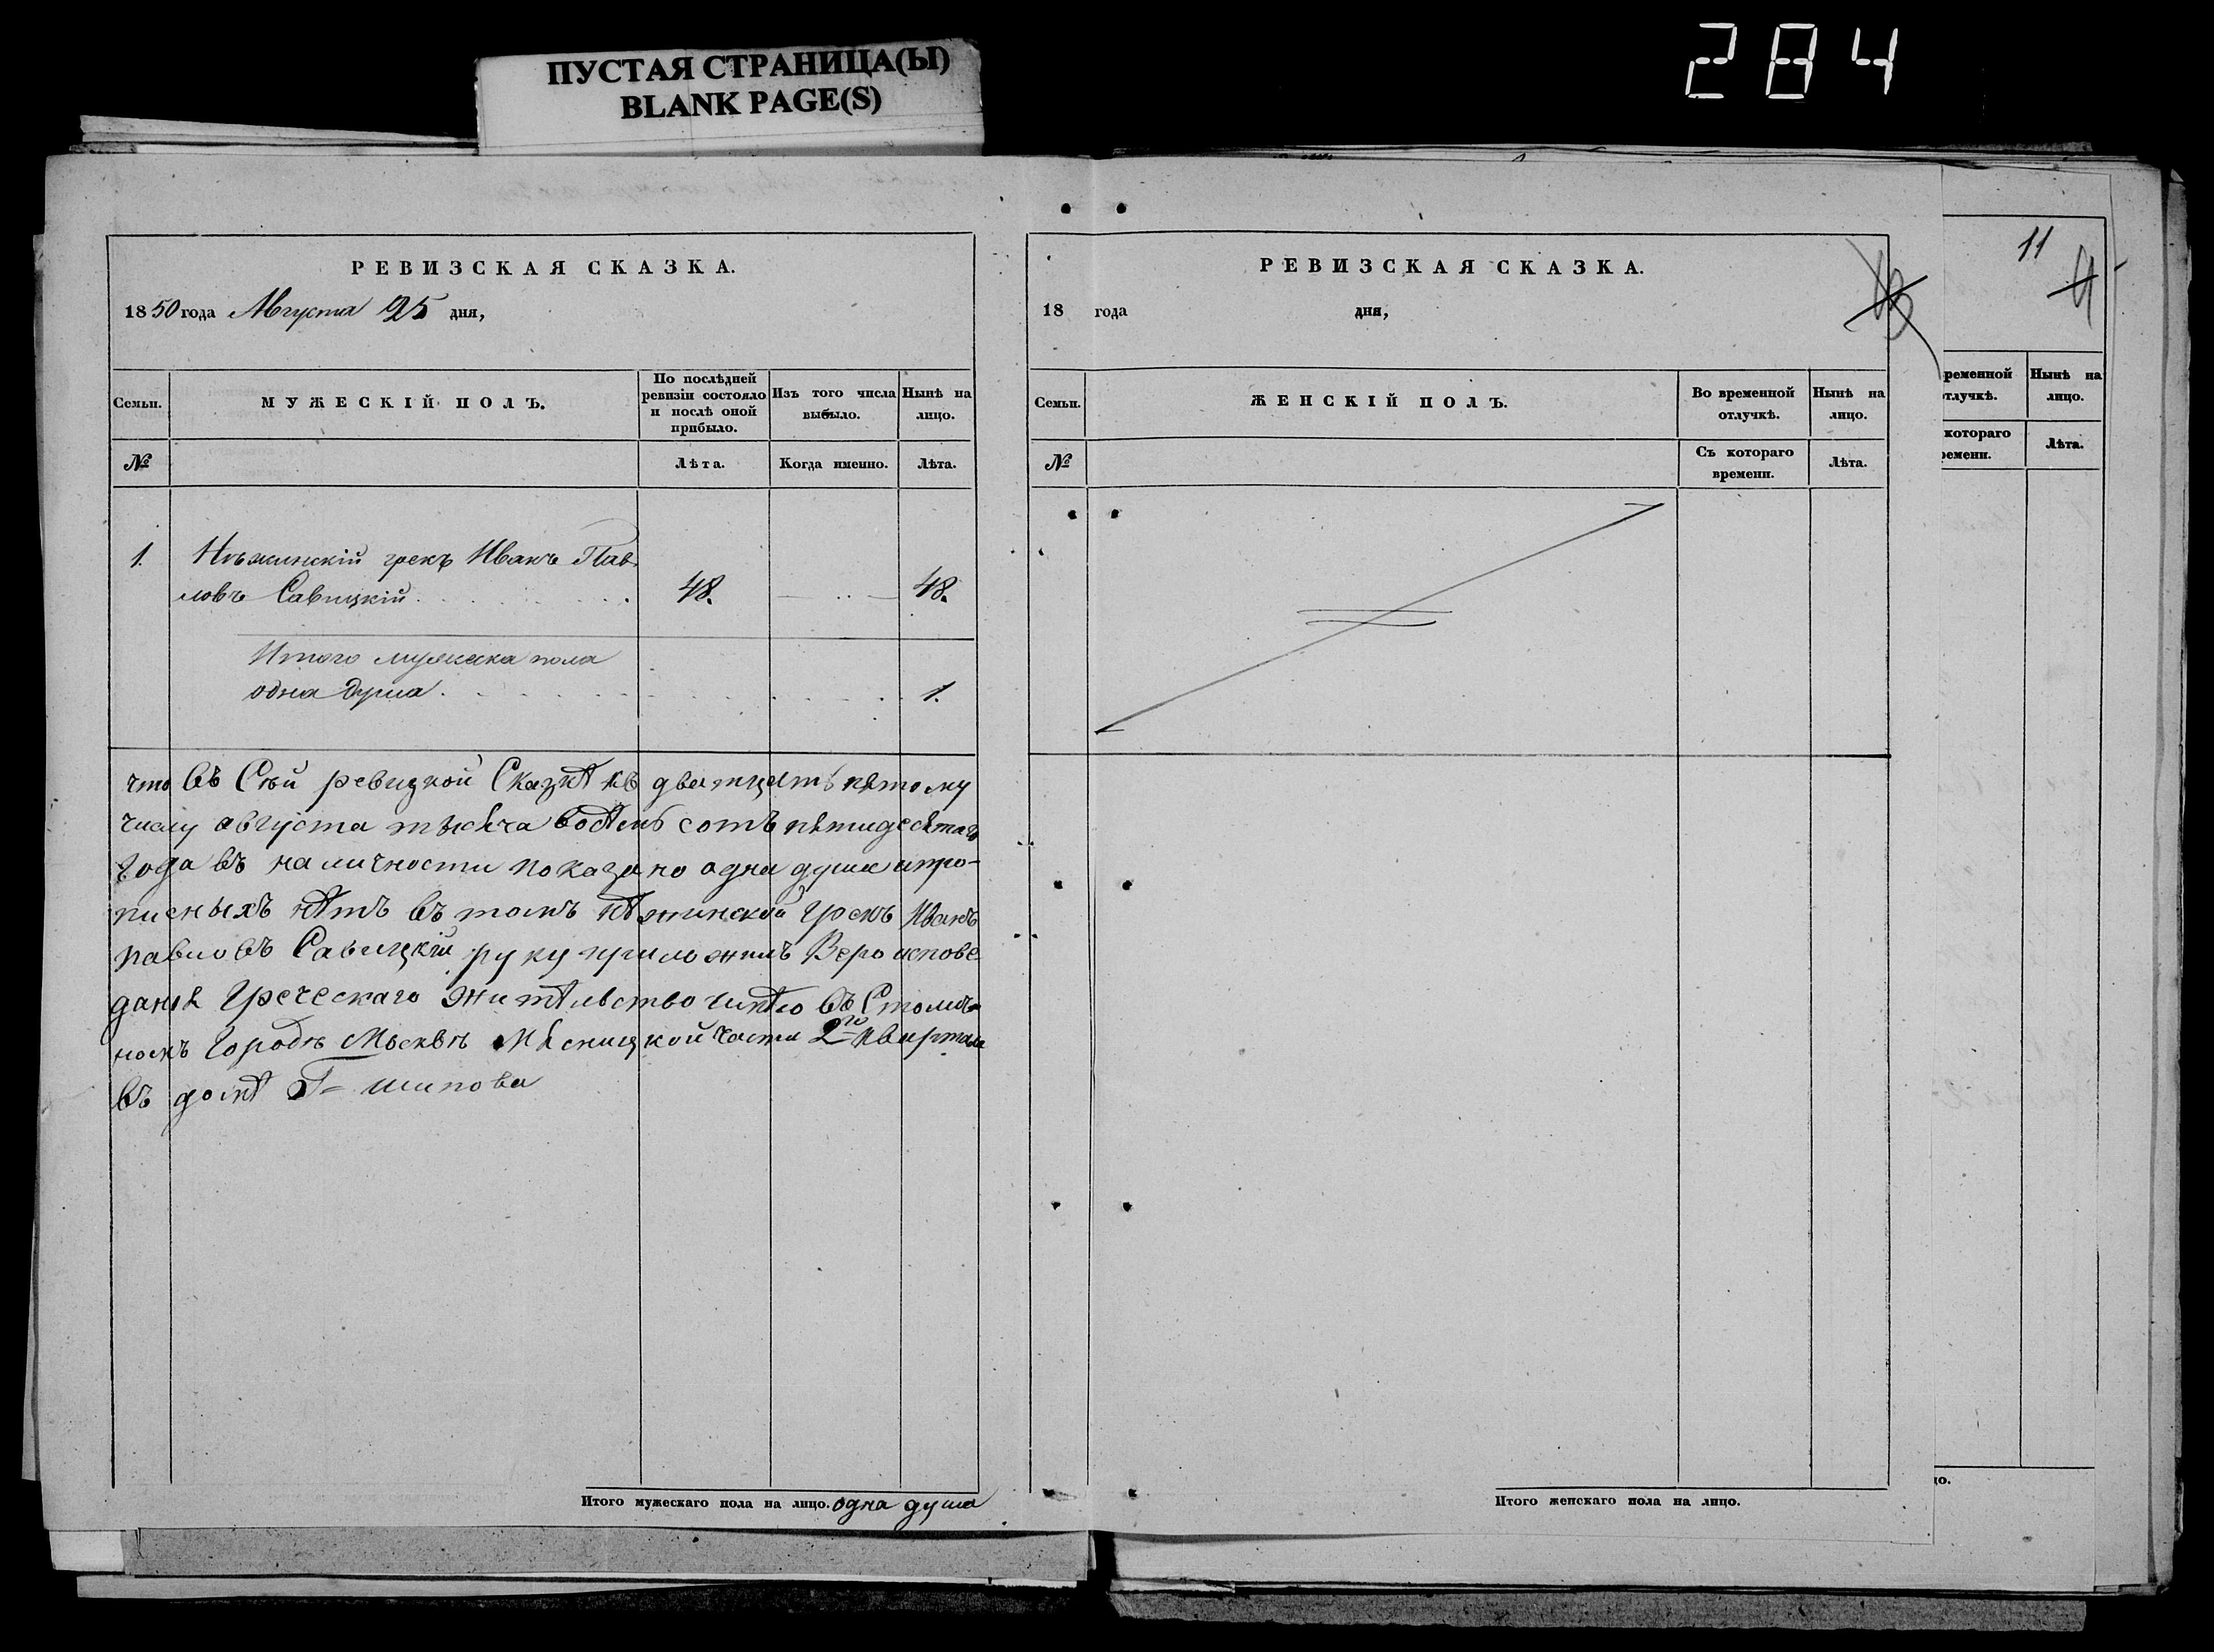 ПУСТАЯ СТРАНИЦА(Ы)
BLANK PAGE(S)
284
РЕВИЗСКАЯ СКАЗКА.
1850 года Августа 25 дня,
Семьи.
МУЖЕСКІЙ ПОЛЪ.
По послѣдней ревизіи состояло и послѣ оной прибыло.
Изъ того числа выбыло.
Нынѣ на лицо.
№
Лѣта.
Когда именно.
Лѣта.
1. Нѣжинскій грекъ Иванъ Пав-
ловъ Савицкій. 48. 48.
Итого мужеска пола
одна душа. 1.
что въ Сѣй ревизкой Сказкѣ къ дватцать пятому
числу августа тысяча восѣмь сотъ пятидесятаго
года въ наличности показано одна душа и про-
писныхъ нѣтъ въ томъ нѣжинской Грекъ Иванъ
павловъ Савицкій руку приложилъ Вероиспове
данія Греческаго Жителѣство имѣю въ Столич-
номъ Городѣ Москвѣ Мясницкой части 2го квартала
въ домѣ Г= шипова
Итого мужескаго пола на лицо. одна душа
РЕВИЗСКАЯ СКАЗКА.
18 года дня,
Семьи.
ЖЕНСКІЙ ПОЛЪ.
Во временной отлучкѣ.
Нынѣ на лицо.
№
Съ котораго времени.
Лѣта.
Итого женскаго пола на лицо.
11
ременной
тлучкѣ.
Нынѣ на
лицо.
котораго
ремени.
Лѣта.
цо.